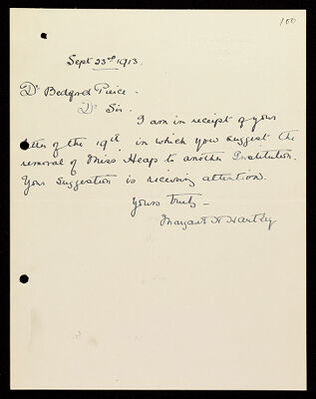 100
Sept 23rd 1913.
Dr Bedford Pierce.
Dr Sir.
I am in receipt of your
letter of the 19th in which you suggest the
removal of Miss Heap to another Institution.
Your suggestion is receiving attention.
Yours truly —
Margaret N Hartley